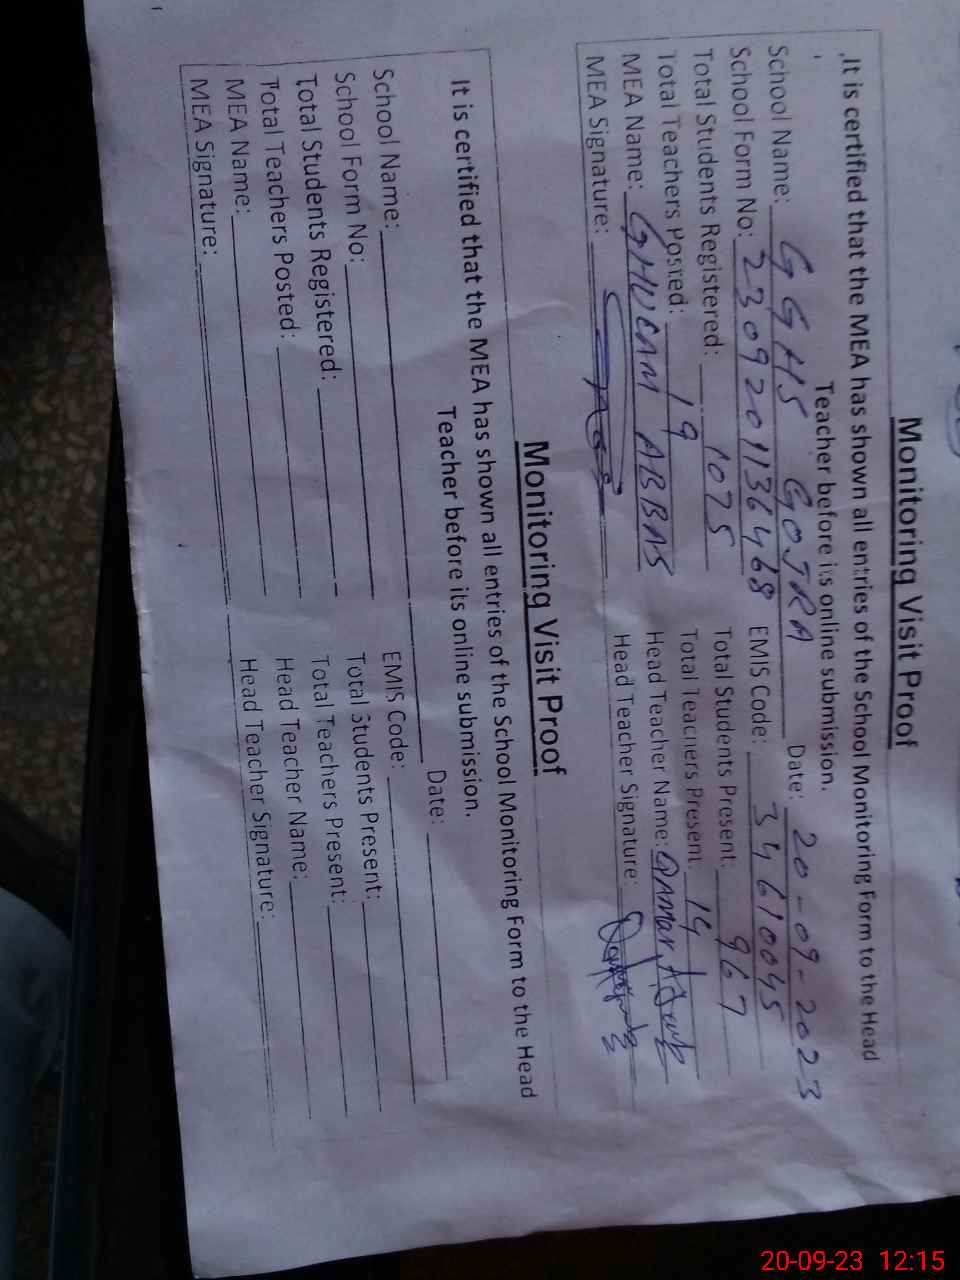 Monitoring Visit Proof
It is certified that the MEA has shown all entries of the School Monitoring Form to the Head
Teacher before its online submission.
School Name: GGHS GOJRA Date: 20-09-2023
School Form No: 2309201136468 EMIS Code: 34610045
Total Students Registered: 1075 Total Students Present: 967
Total Teachers Posted: 19 Total Teachers Present: 14
MEA Name: GHULAM ABBAS Head Teacher Name: Qamar
MEA Signature: Head Teacher Signature:
Monitoring Visit Proof
It is certified that the MEA has shown all entries of the School Monitoring Form to the Head
Teacher before its online submission.
School Name: Date:
School Form No: EMIS Code:
Total Students Registered: Total Students Present:
Total Teachers Posted: Total Teachers Present:
MEA Name: Head Teacher Name:
MEA Signature: Head Teacher Signature:
20-09-23 12:15